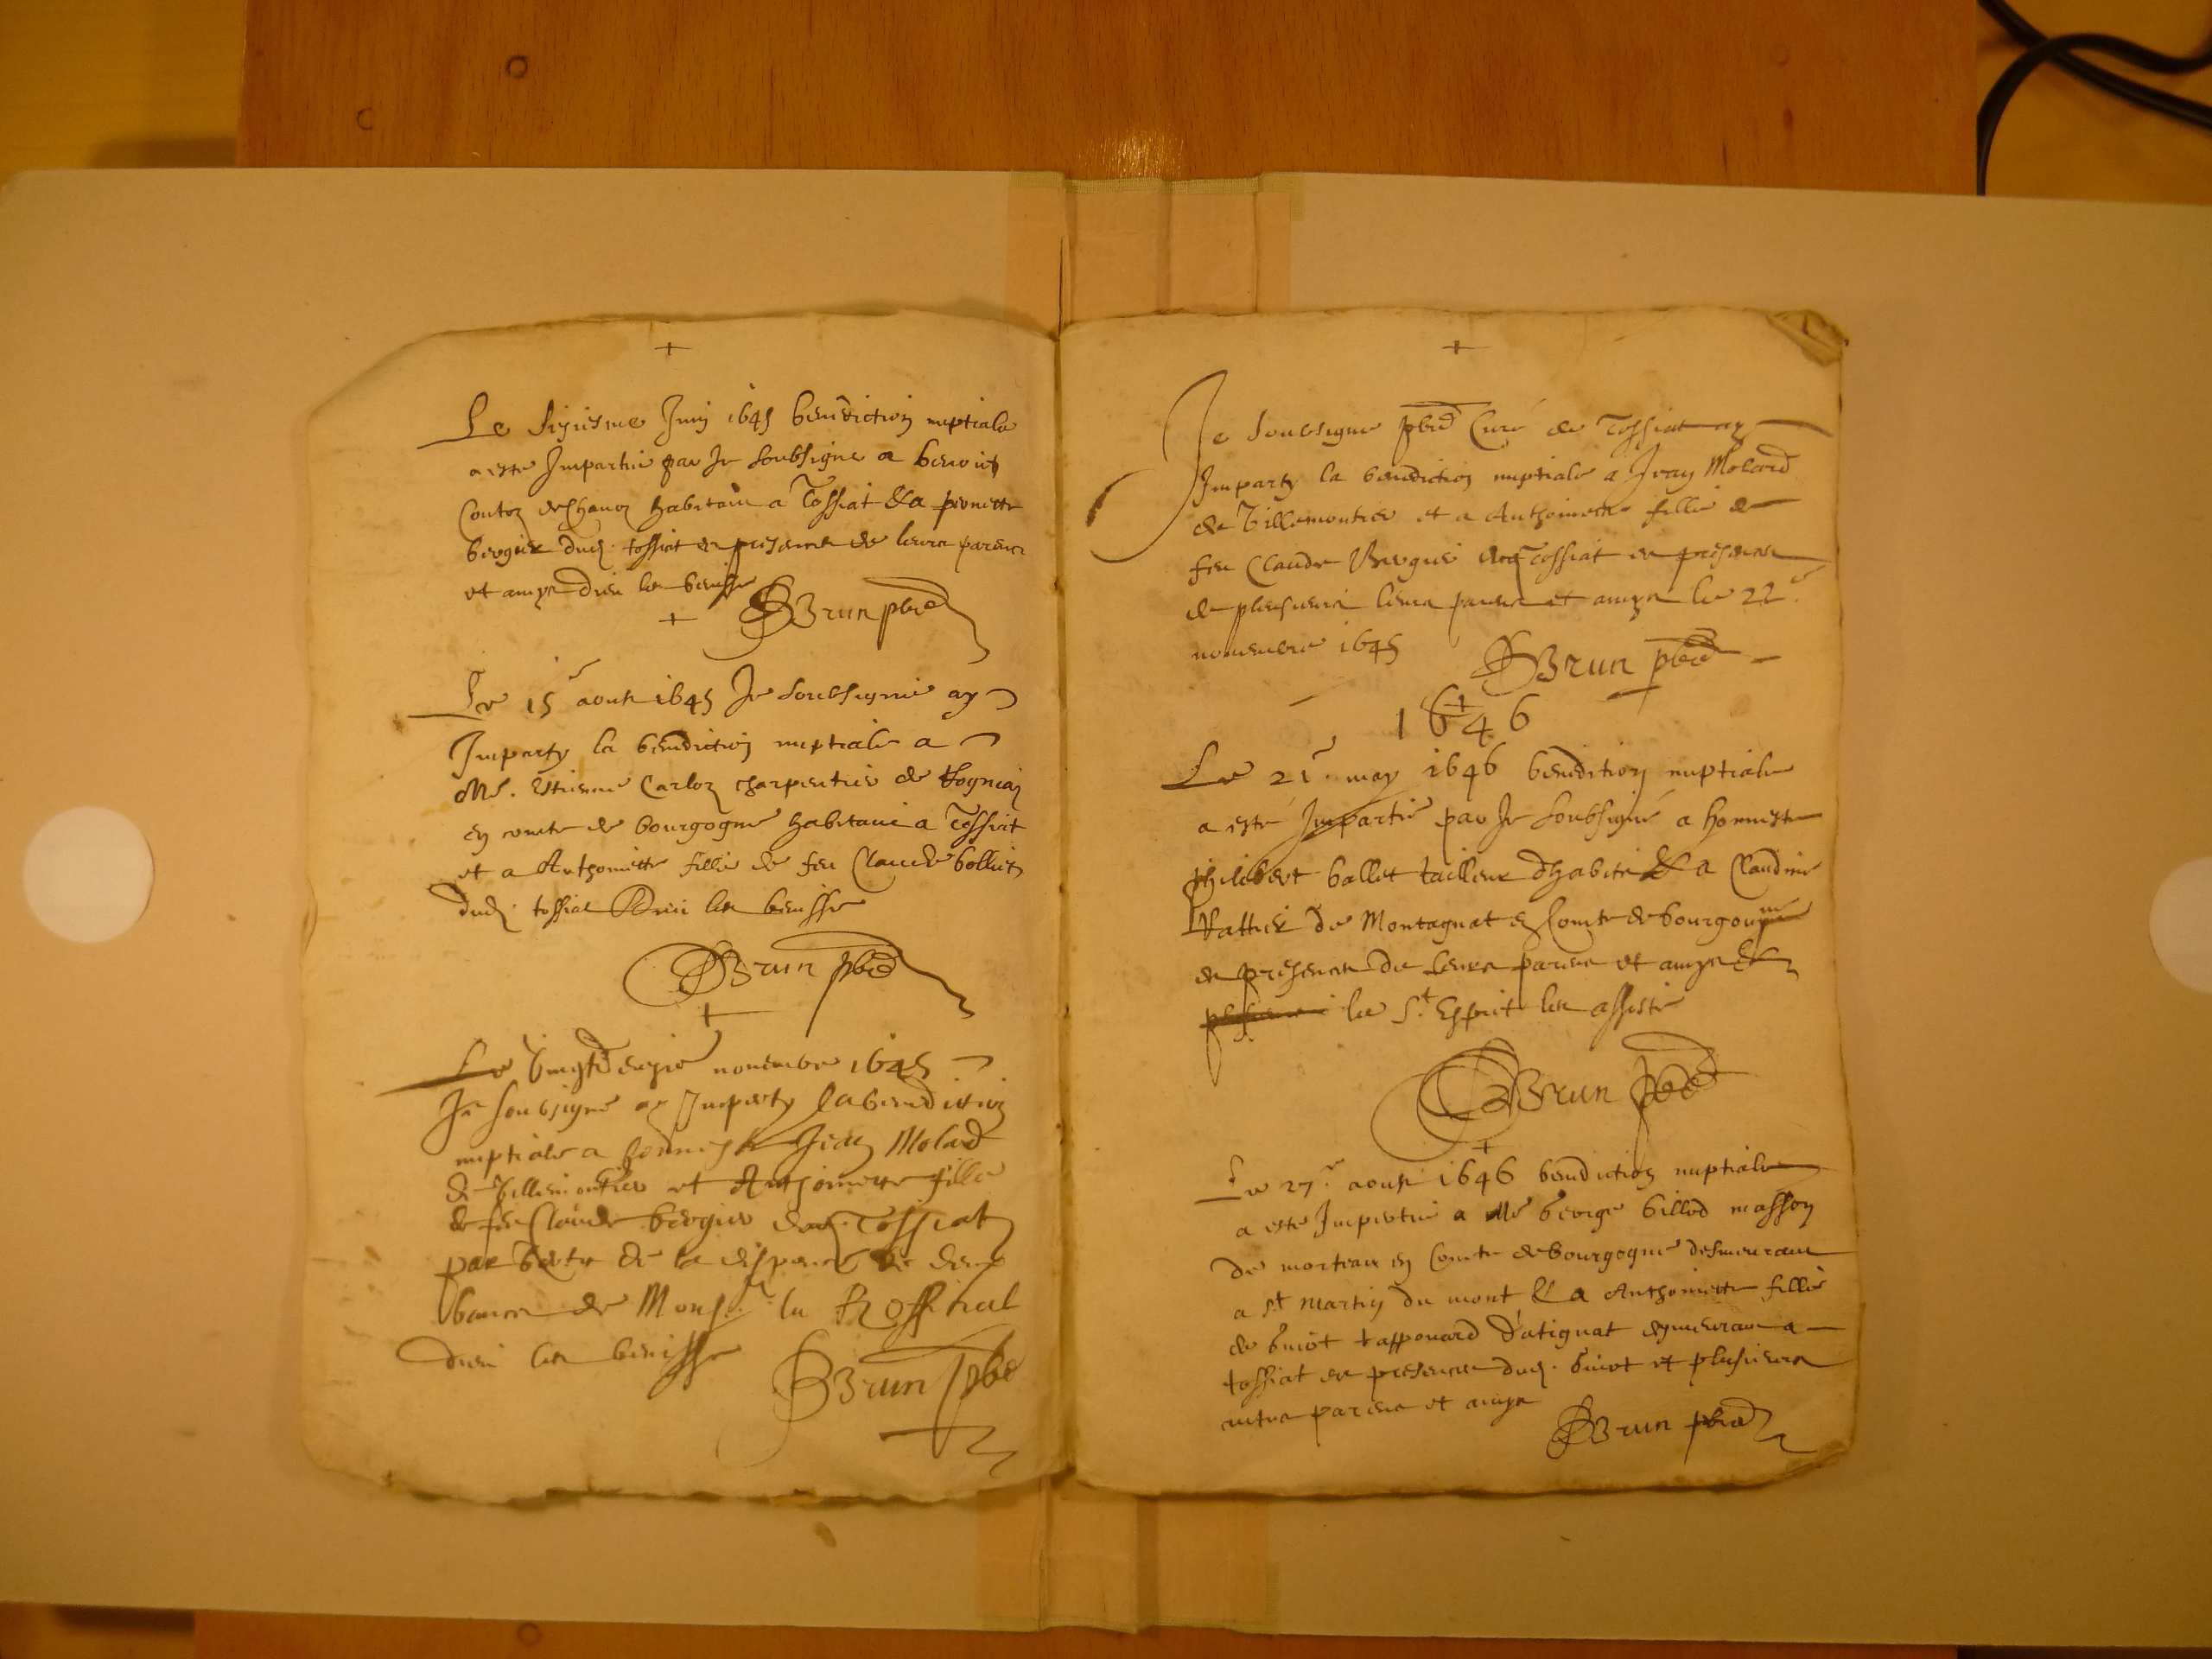 +
Le sixiesme Juin 1645 benediction nuptiale
a este Impartie par Je soubsigne a benoict
habitant a Tossiat & a pernette
bergier dud. tossiat en presence de leurs parens
et amys Dieu les benisse
+ Brun pbre
Le 15e aoust 1645 Je soubsigné ay
Imparty la benediction nuptiale a
Me. Estienne Carloz charpentier de
en comté de bourgogne habitant a Tossiat
et a Anthoinette fille de feu Claude bolliet
dud. tossiat Dieu les benisse
Brun pbre
+
Le Vingt novembre 1645
Je soubsigne ay Imparty la benediction
nuptiale a honneste Jean Molard
de Villemontier et Anthoinette fille
de feu Claude bergier dud. Tossiat
par Vertu de la dispence de deux
bancs de Monsr. l'official
dieu les benisse
Brun pbre
+
Je soubsigne pbre Curé de Tossiat ay
Imparty la benediction nuptiale a Jean Molard
de Villemontier et a Anthoinette fille de
feu Claude Bergier dud Tossiat en presence
de plusieurs leurs parens et amys le 22e
novembre 1645 Brun pbre
+
1646
Le 21e. may 1646 benediction nuptiale
a esté Impartie par Je soubsigné a honneste
philibert ballet tailleur d'habits & a Claudine
de Montagnat en Comté de bourgougne
en presence de leurs parens et amys &
le St. Esprit les assiste
Brun pbre
+
Le 27e. aoust 1646 benediction nuptiale
a este Impartie a Me george billod masson
de morteau en Comté de bourgogne demeurant
a St martin du mont & a Anthoinette fille
de benoit tapponard d'atignat demeurant a
tossiat en presence dud. benoit et plusieurs
autres parens et amys
Brun pbre